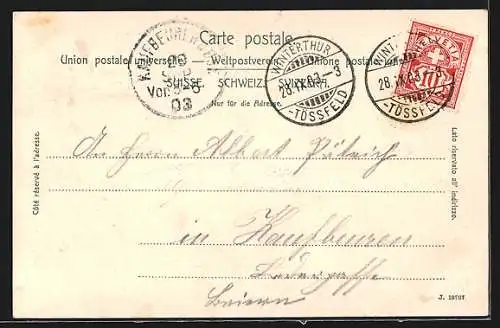 Carte postale.
Union postale universelle — Weltpostverein — Unione postale universale
SUISSE. SCHWEIZ. SVIZZERA.
Nur für die Adresse.
KAUFBEUREN
Vor. 8-9
03
WINTERTHUR
28.IX.03.-3
-TÖSSFELD
WINTERTHUR
28.IX.03.-3
-TÖSSFELD
HELVETIA
10
Côté réservé à l'adresse.
Lato riservato all' indirizzo.
An Herrn Albert
in Kaufbeuren
Baiern